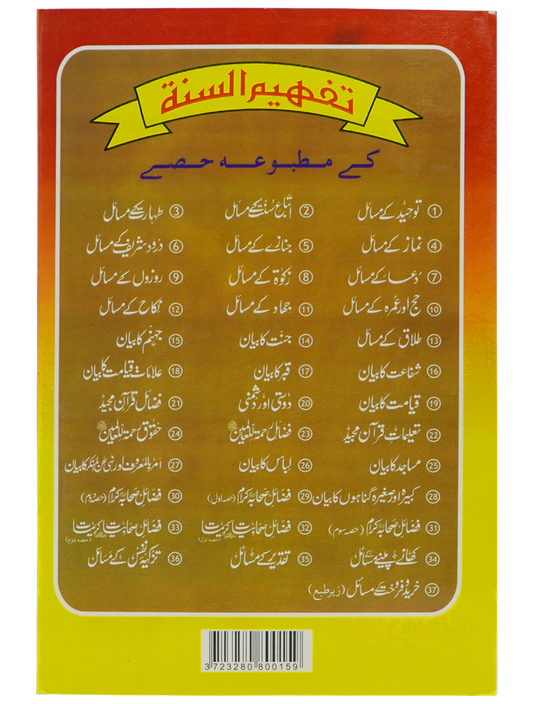 تفهیم السنة
کے مطبوعہ حصے
① توحید کے مسائل ② اتباع سنت کے مسائل ③ طہارت کے مسائل
④ نماز کے مسائل ⑤ جنازے کے مسائل ⑥ درود شریف کے مسائل
⑦ دعا کے مسائل ⑧ زکوٰۃ کے مسائل ⑨ روزوں کے مسائل
⑩ حج اور عمرہ کے مسائل ⑪ جہاد کے مسائل ⑫ نکاح کے مسائل
⑬ طلاق کے مسائل ⑭ جنت کا بیان ⑮ جہنم کا بیان
⑯ شفاعت کا بیان ⑰ قبر کا بیان ⑱ علامات قیامت کا بیان
⑲ قیامت کا بیان ⑳ دوستی اور دشمنی ㉑ فضائل قرآن مجید
㉒ تعلیمات قرآن مجید ㉓ فضائل رحمۃ للعالمین ㉔ حقوق رحمۃ للعالمین
㉕ مساجد کا بیان ㉖ لباس کا بیان ㉗ امر بالمعروف اور نہی عن المنکر کا بیان
㉘ کبیرہ اور صغیرہ گناہوں کا بیان ㉙ فضائل صحابہ کرام (حصہ اول) ㉚ فضائل صحابہ کرام (حصہ دوم)
㉛ فضائل صحابہ کرام (حصہ سوم) ㉜ فضائل صحابیات (حصہ اول) ㉝ فضائل صحابیات (حصہ دوم)
㉞ کھانے پینے کے مسائل ㉟ تقدیر کے مسائل ㊱ تزکیہ نفس کے مسائل
㊲ خرید و فروخت کے مسائل (زیر طبع)
3723280 800159